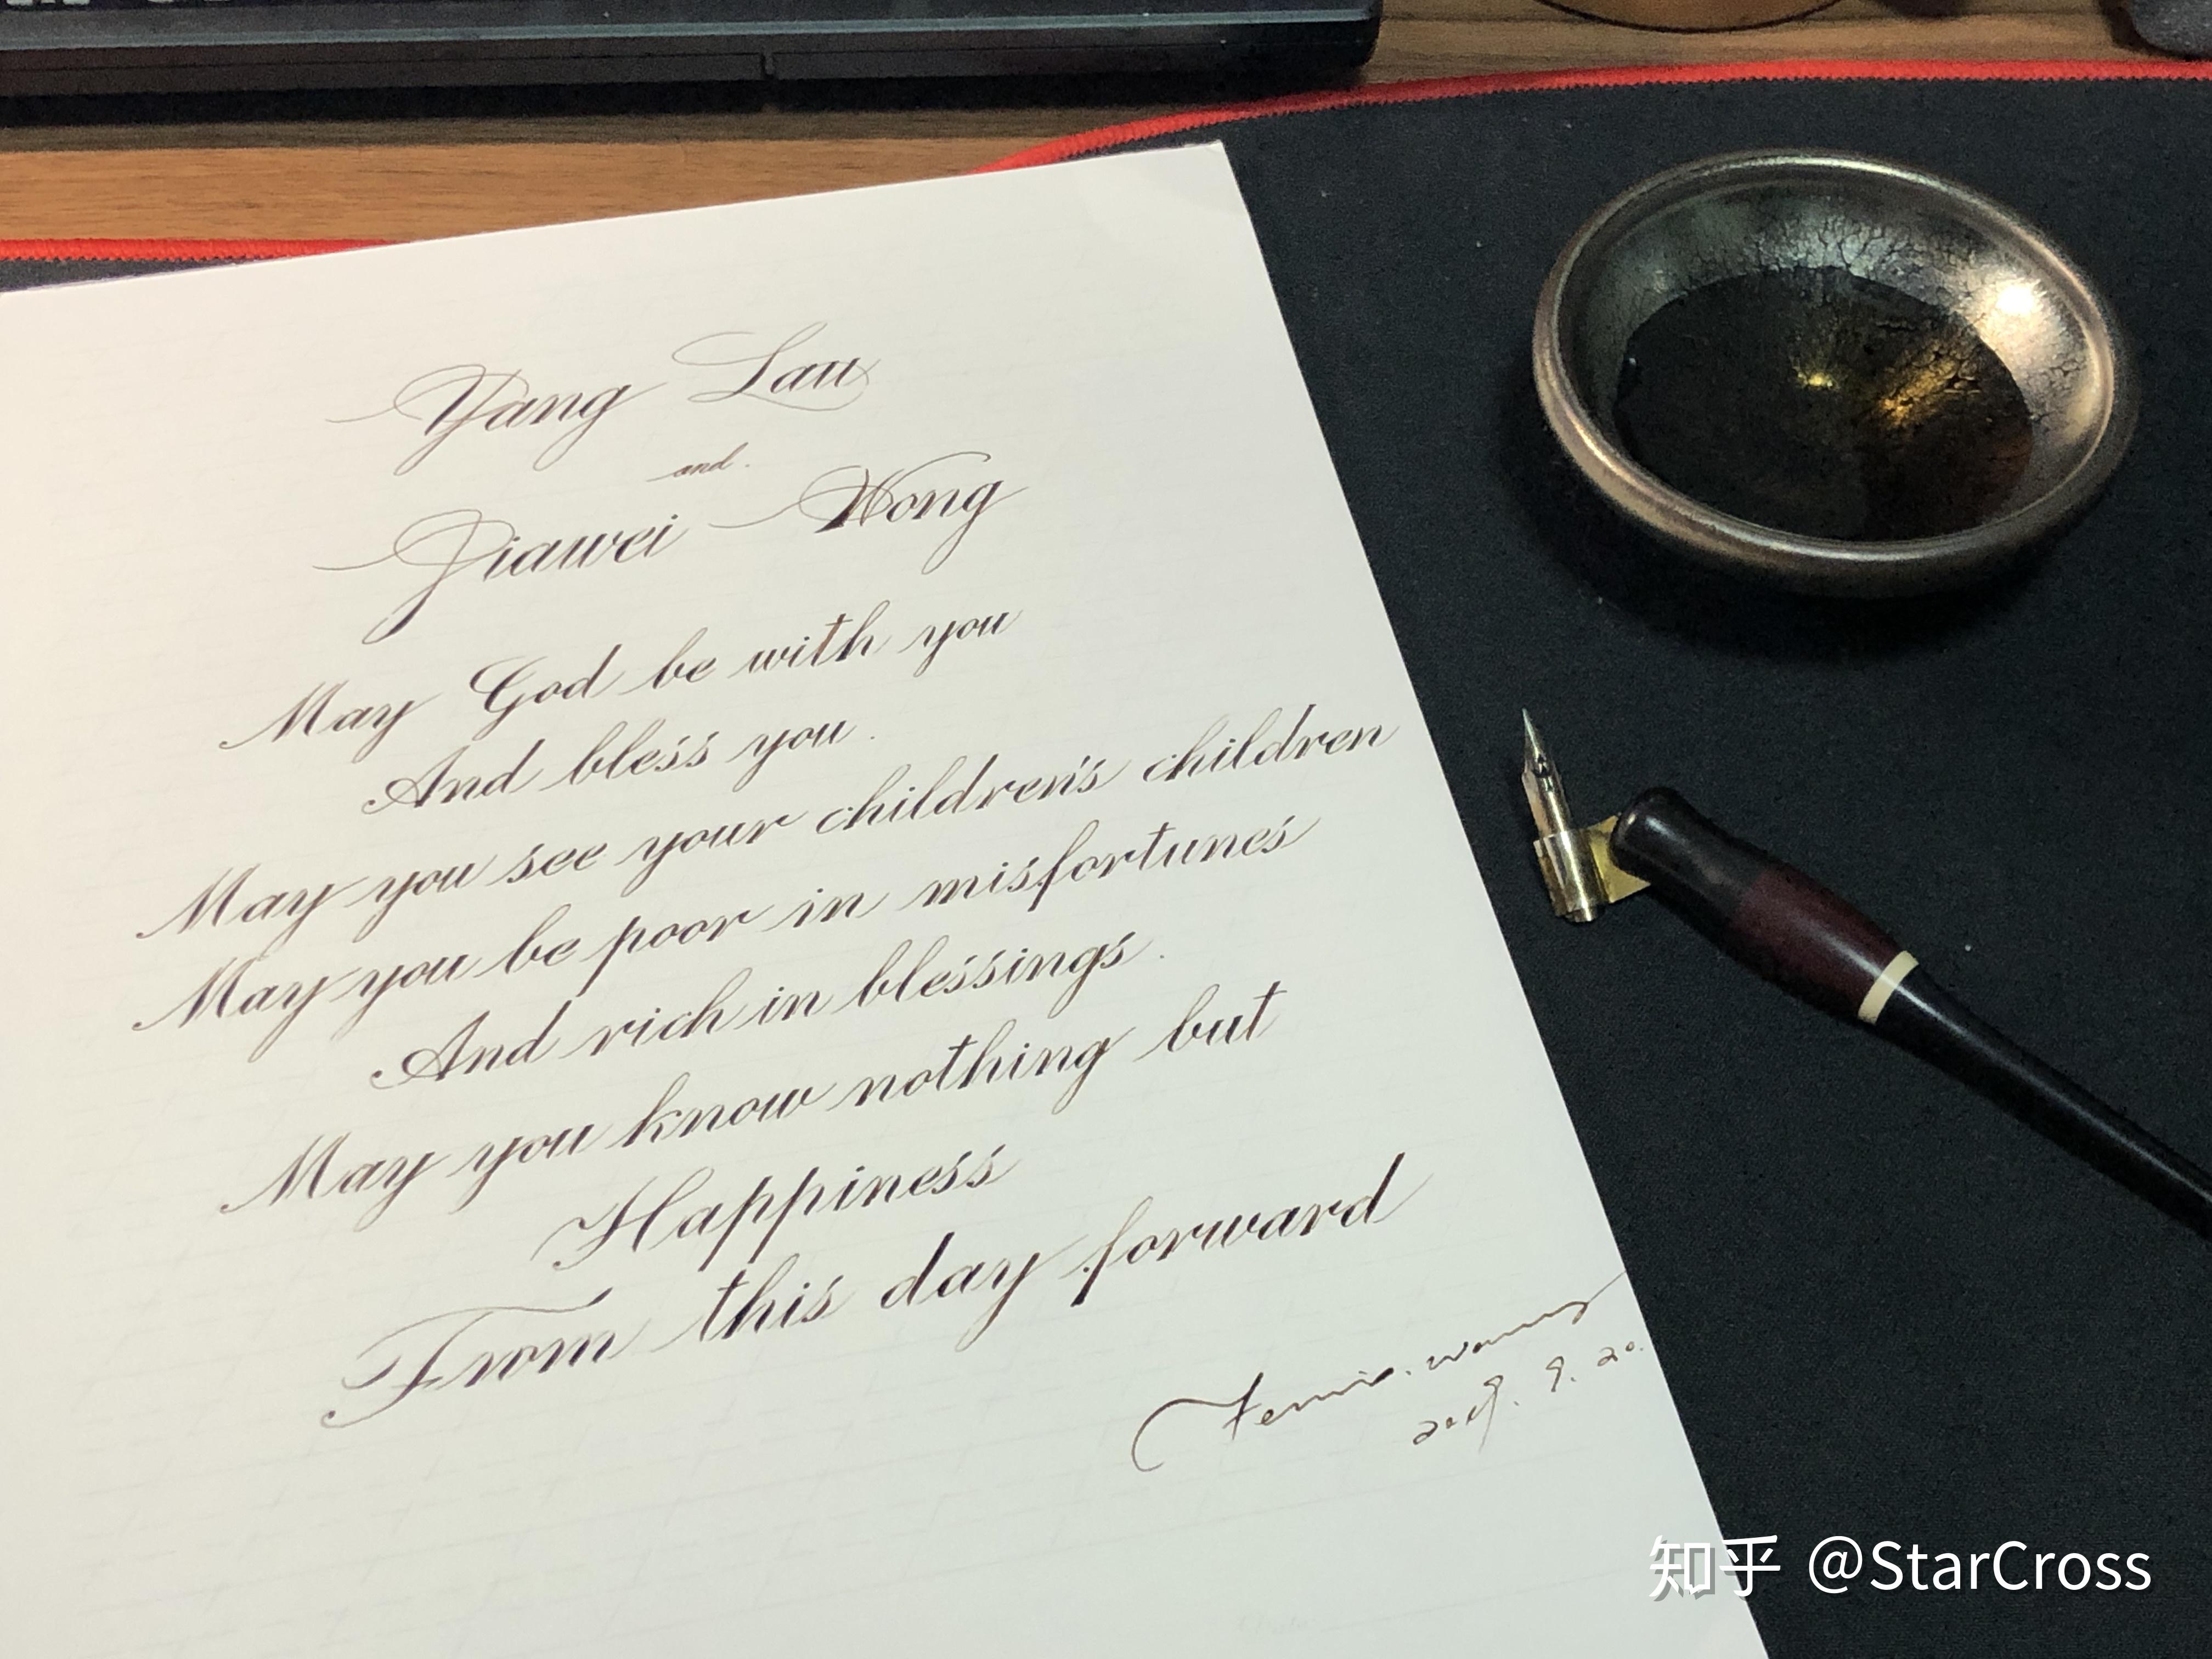 Yang Lau
and.
Jiawei Wong
May God be with you
And bless you.
May you see your children's children
May you be poor in misfortunes
And rich in blessings.
May you know nothing but
Happiness
From this day forward
2019. 9. 20.
知乎 @StarCross